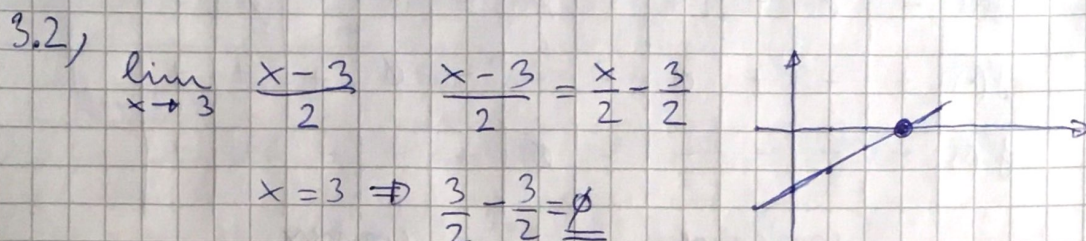 3.2,
lim x→3 (x-3)/2   (x-3)/2 = x/2 - 3/2
x = 3 ⇒ 3/2 - 3/2 = 0